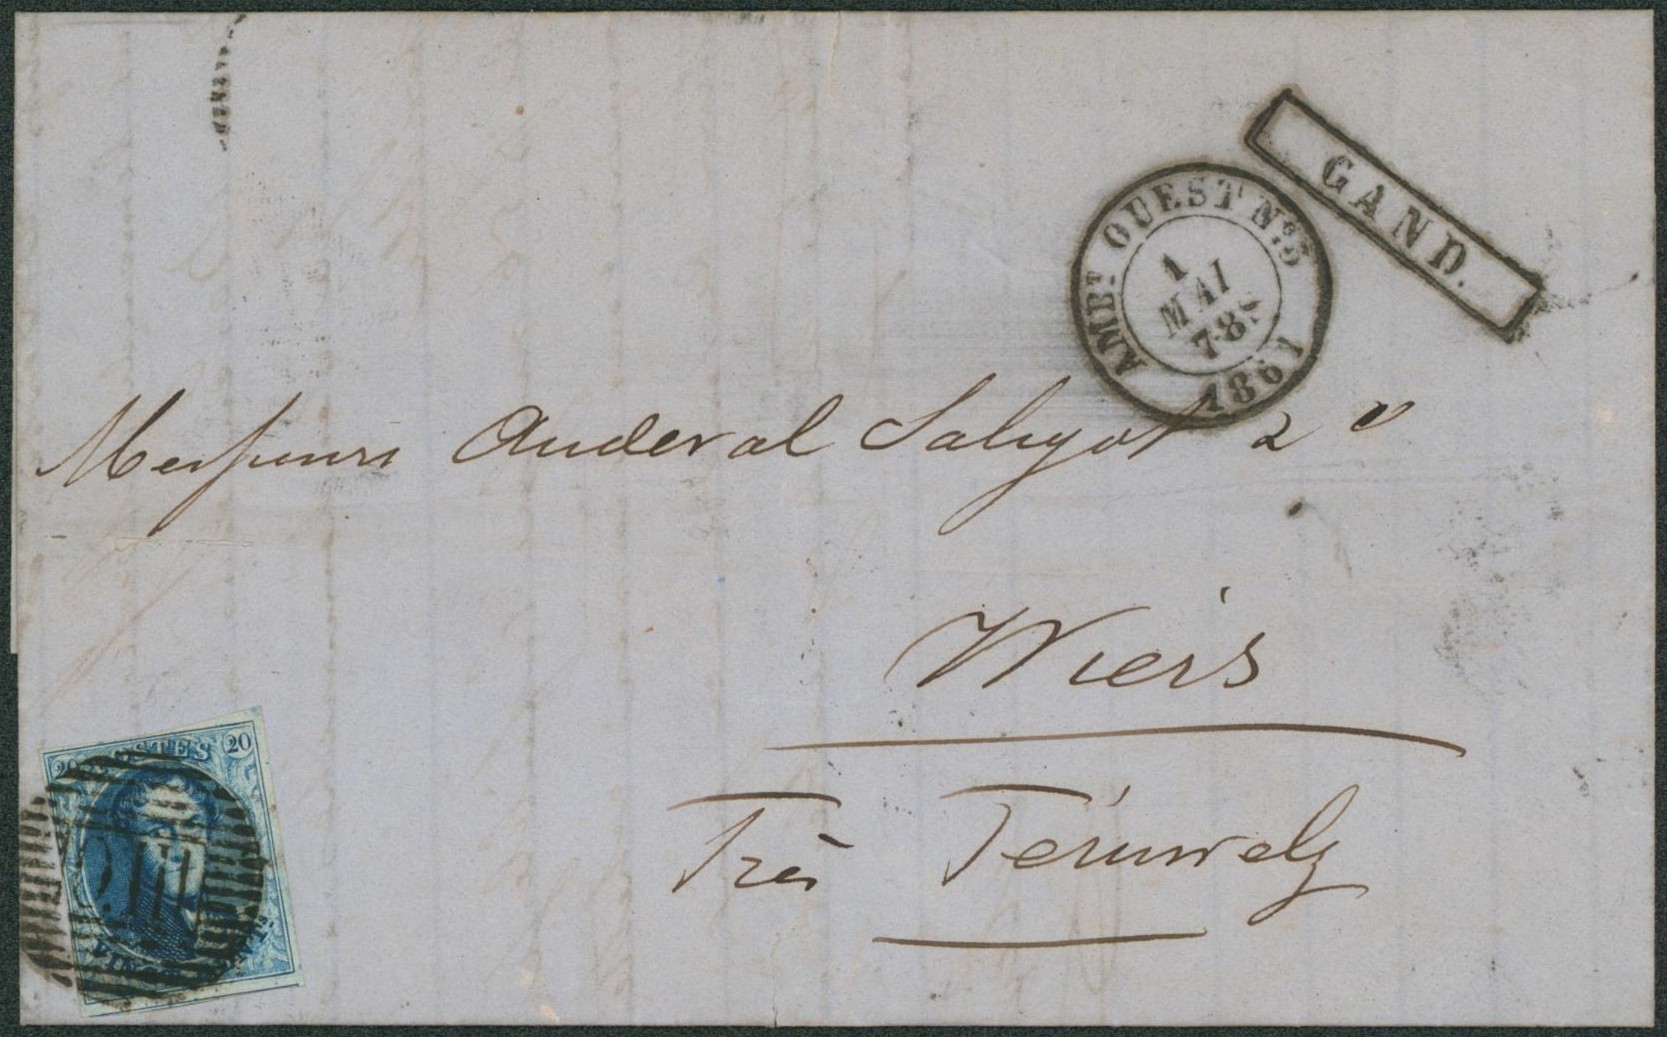 GAND.
AMBT OUEST No. 5
1
MAI
7-8 S
1861
Messieurs Auderal Saligot & Cie
Wiers
Près Péruwelz
POSTES
20 20
VINGT CENTS.